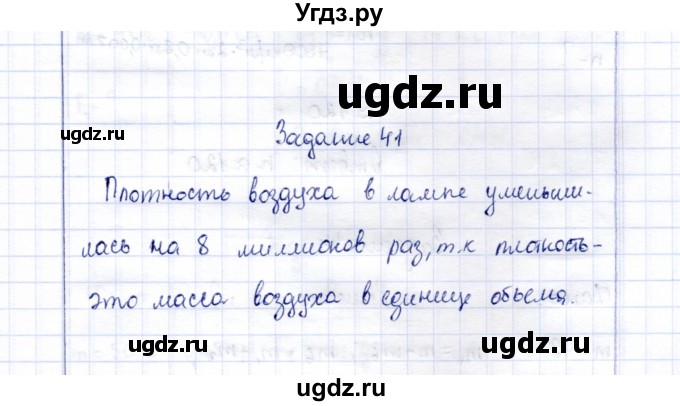 Угдз.ру
ugdz.ru
ugdz.ru
Задание 41
ugdz.ru
Плотность воздуха в лампе уменьши-
лась на 8 миллионов раз, т.к плотность-
это масса воздуха в единице объема.
ugdz.ru
ugdz.ru
ugdz.ru